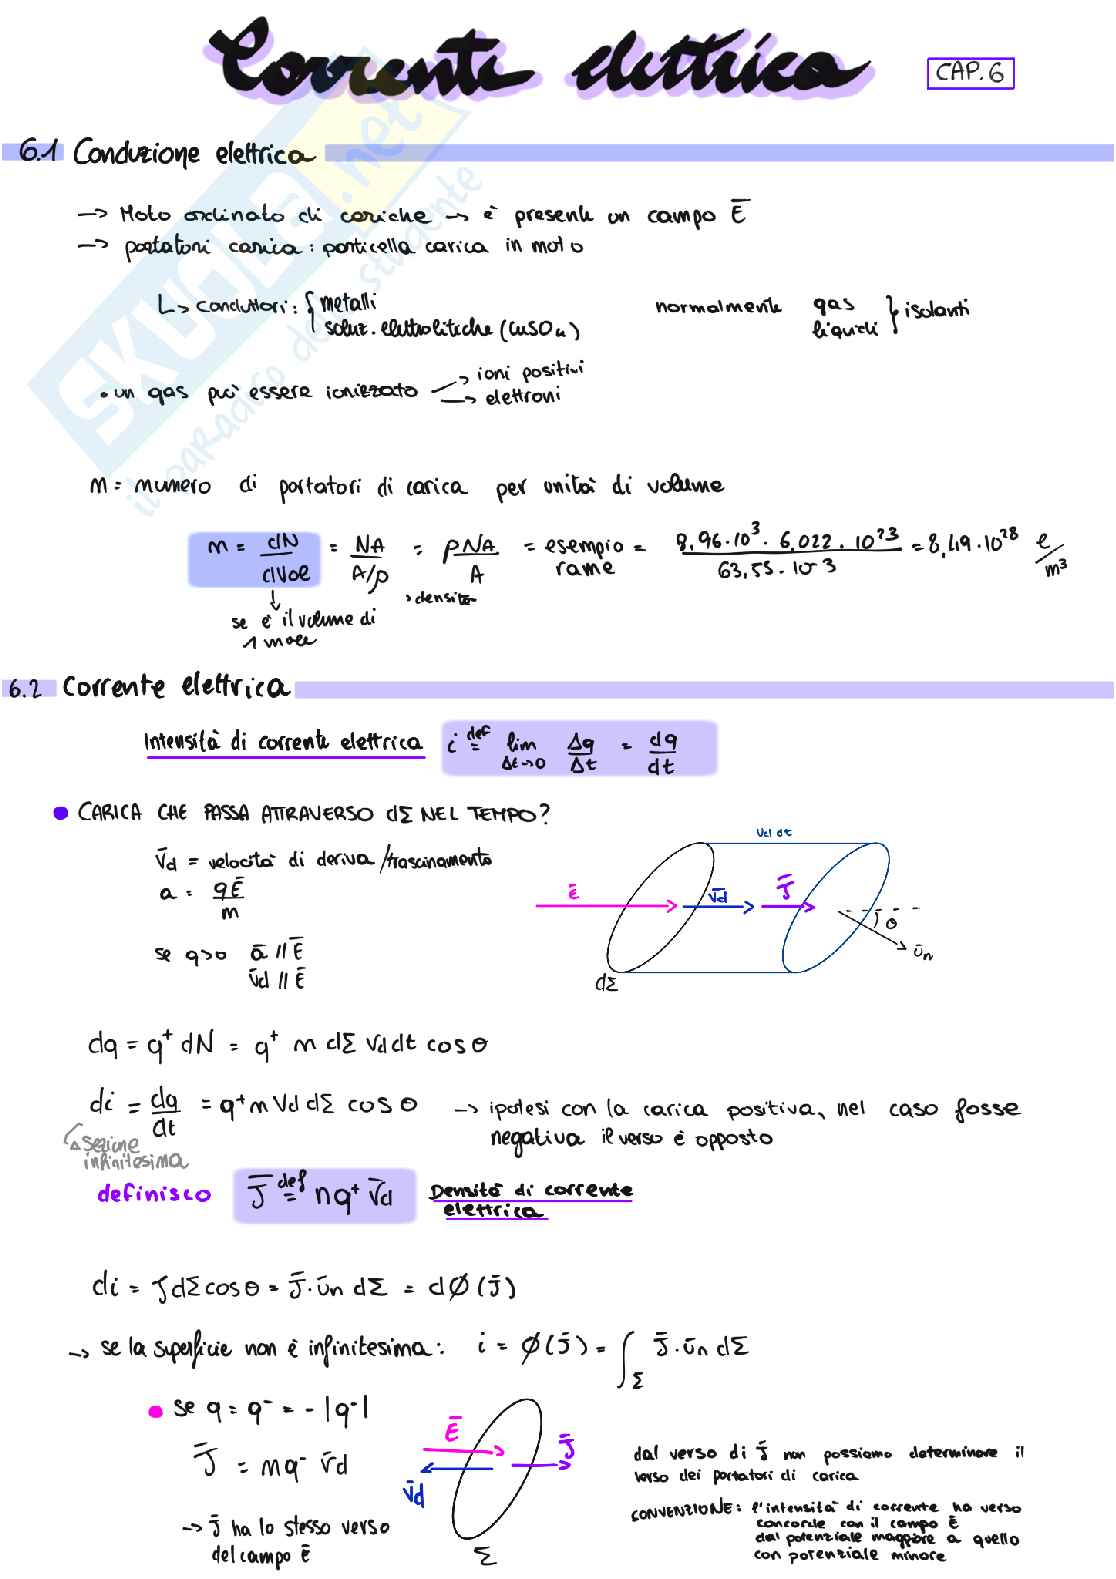 Corrente elettrica
CAP. 6
6.1 Conduzione elettrica
-> Moto ordinato di cariche -> è presente un campo E̅
-> portatori carica: particella carica in moto
L> conduttori: { metalli
soluz. elettrolitiche (CuSO₄)
normalmente gas
liquidi } isolanti
• un gas può essere ionizzato -> ioni positivi
-> elettroni
n = numero di portatori di carica per unità di volume
n = dN/dVol = NA/(A/ρ) = ρNA/A = esempio rame = (8,96·10³ · 6,022 · 10²³)/(63,55 · 10⁻³) = 8,49·10²⁸ e/m³
↓ se è il volume di
1 mole
> densità
6.2 Corrente elettrica
Intensità di corrente elettrica i =def lim Δt->0 Δq/Δt = dq/dt
• CARICA CHE PASSA ATTRAVERSO dΣ NEL TEMPO?
v̅d = velocità di deriva/trascinamento
a = qE̅/m
se q>0 a̅ // E̅
v̅d // E̅
vd dt
E̅ v̅d J̅
θ
u̅n
dΣ
dq = q⁺ dN = q⁺ n dΣ vd dt cos θ
di = dq/dt = q⁺ n vd dΣ cos θ -> ipotesi con la carica positiva, nel caso fosse
negativa il verso è opposto
sezione
infinitesima
definisco J̅ =def nq⁺ v̅d Densità di corrente
elettrica
di = J dΣ cos θ = J̅·u̅n dΣ = dØ(J̅)
-> se la superficie non è infinitesima: i = Ø(J̅) = ∫Σ J̅·u̅n dΣ
• se q = q⁻ = -|q⁻|
J̅ = nq⁻ v̅d
-> J̅ ha lo stesso verso
del campo E̅
E̅ J̅
v̅d
Σ
dal verso di J̅ non possiamo determinare il
verso dei portatori di carica
CONVENZIONE: l'intensità di corrente ha verso
concorde con il campo E̅
dal potenziale maggiore a quello
con potenziale minore
SKUOLA.net
il paradiso dello studente